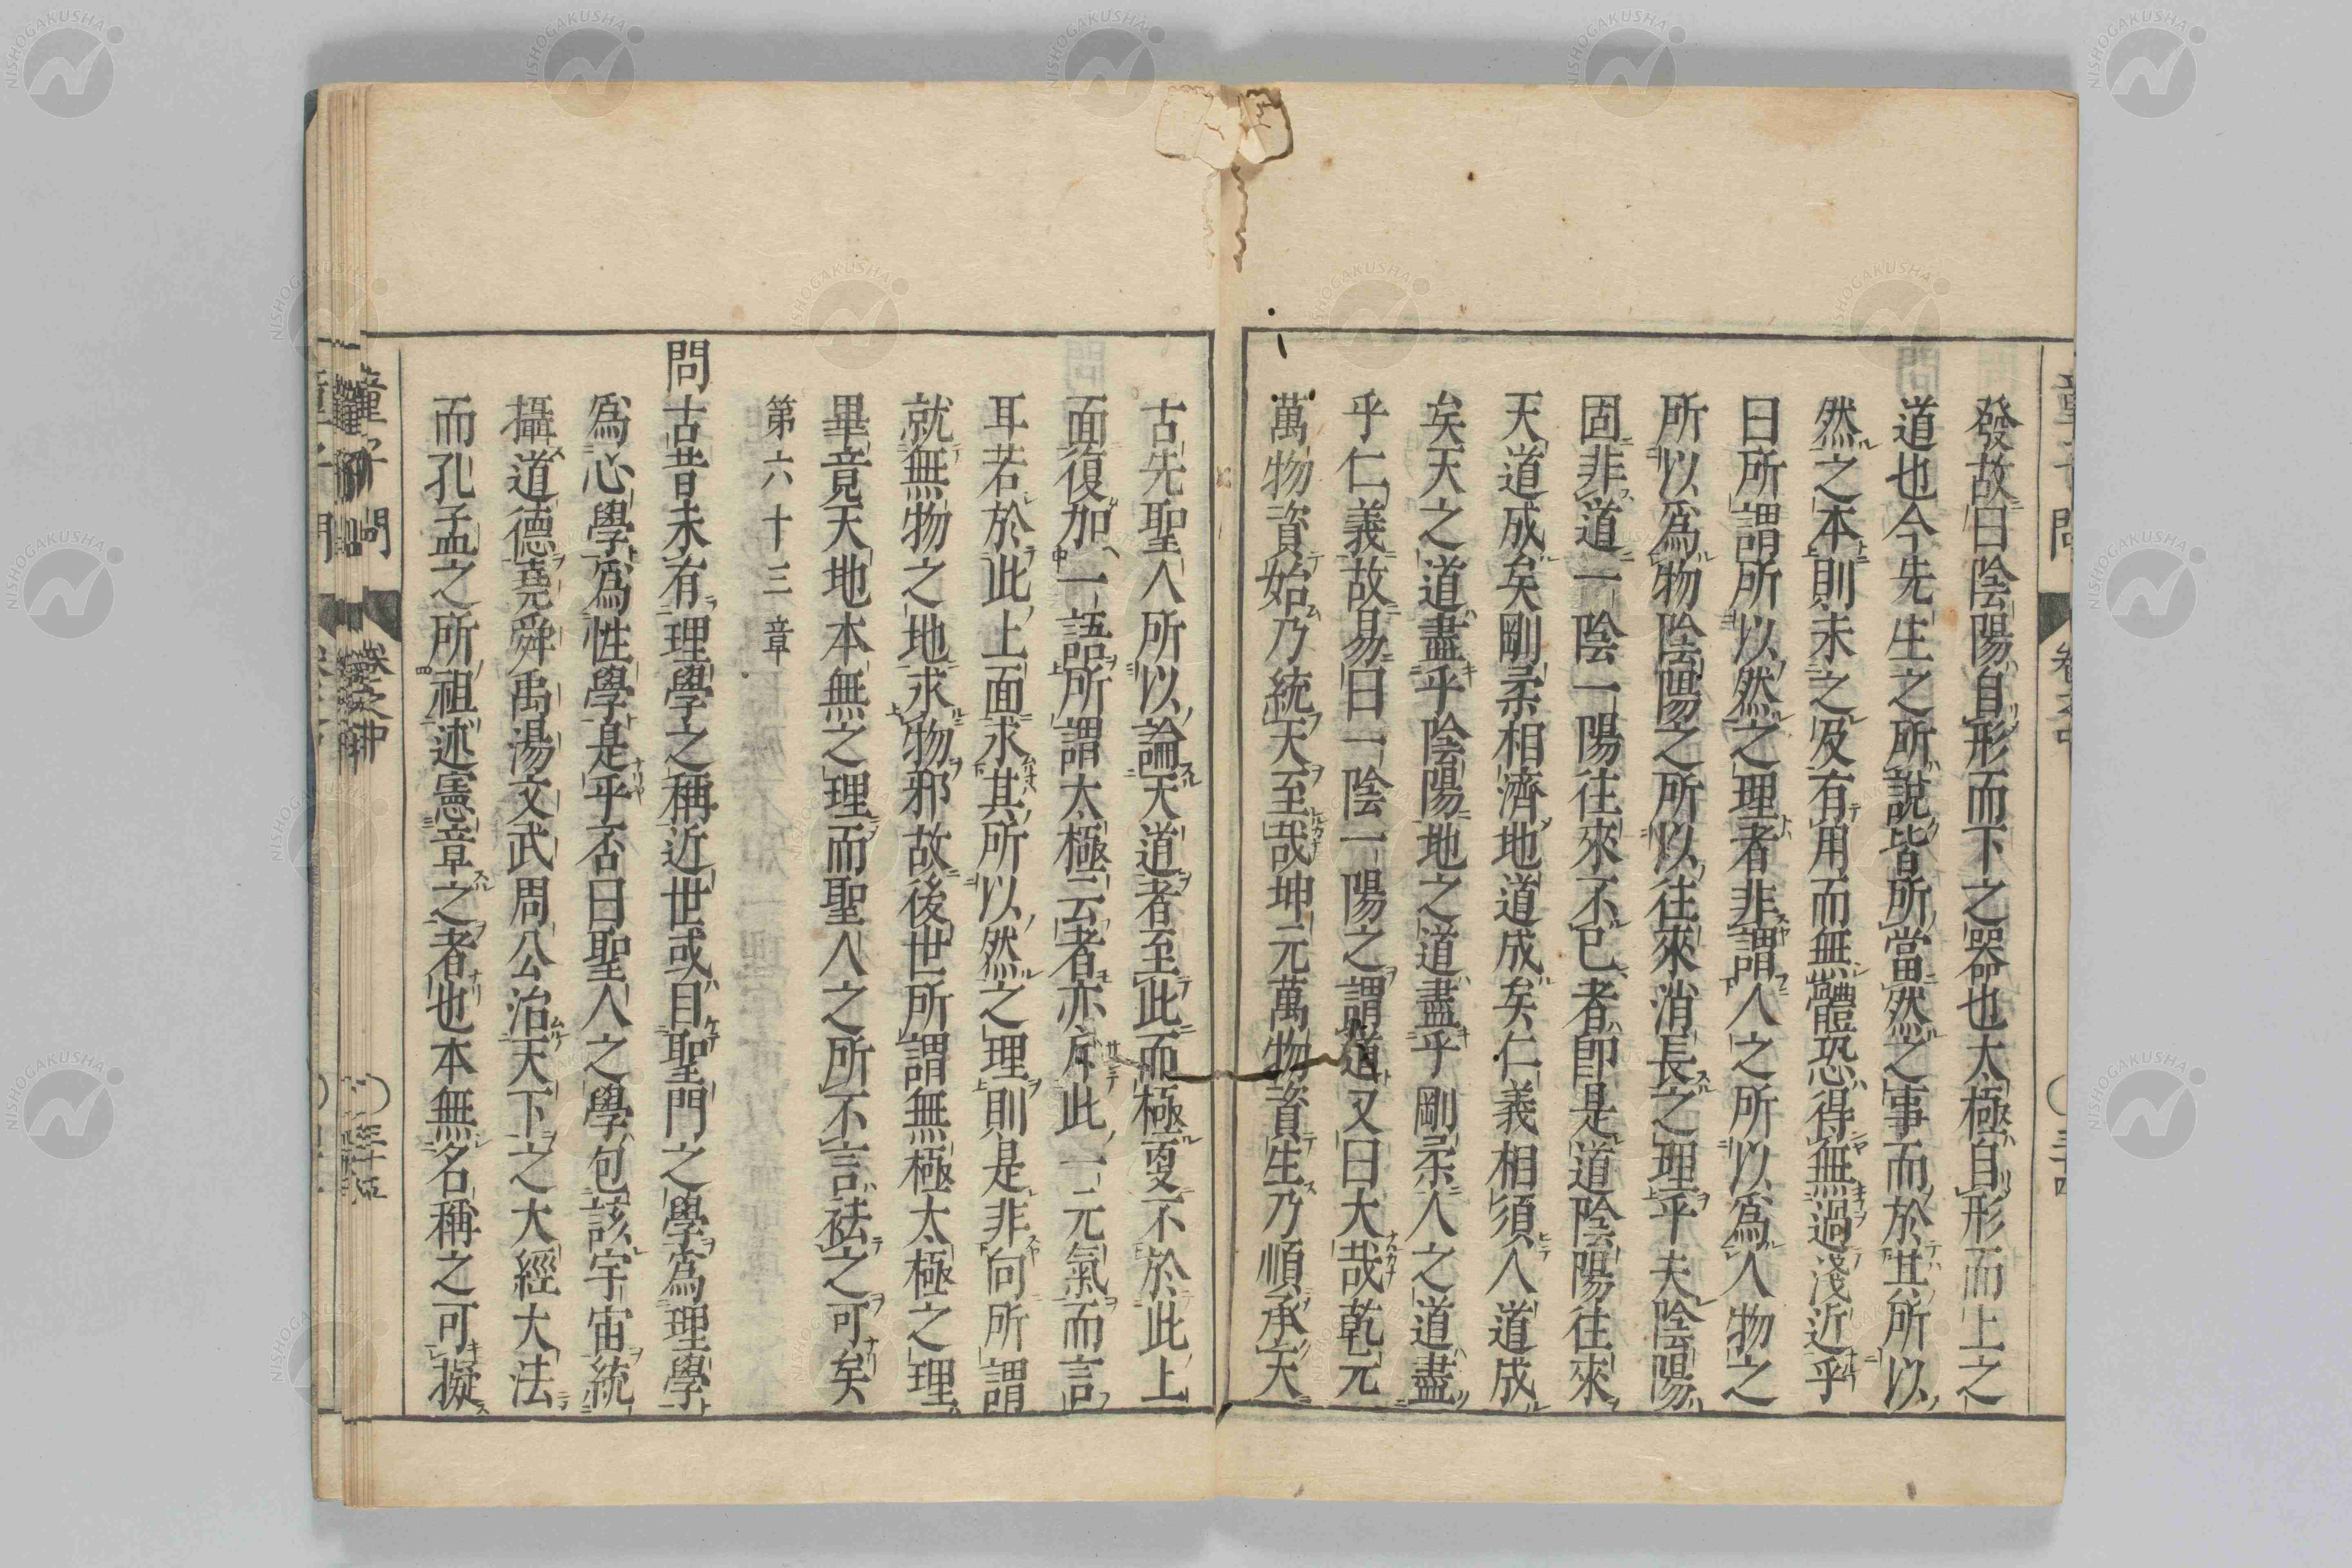 發故曰陰陽自形而下之器也太極自形而上之
道也今先生之所說皆所當然之事而於其所以
然之本則未之及有用而無體恐得無過淺近乎
曰所謂所以然之理者非謂人之所以爲人物之
所以爲物陰陽之所以往來消長之理乎夫陰陽
固非道一陰一陽往來不已者卽是道陰陽往來
天道成矣剛柔相濟地道成矣仁義相須人道成
矣天之道盡乎陰陽地之道盡乎剛柔人之道盡
乎仁義故易曰一陰一陽之謂道又曰大哉乾元
萬物資始乃統天至哉坤元萬物資生乃順承天
古先聖人所以論天道者至此而極更不於此上
面復加一語所謂太極云者亦斥此一元氣而言
耳若於此上面求其所以然之理則是非向所謂
就無物之地求物邪故後世所謂無極太極之理
畢竟天地本無之理而聖人之所不言袪之可矣
第六十三章
問古昔未有理學之稱近世或目聖門之學爲理學
爲心學爲性學是乎否曰聖人之學包該宇宙統
攝道德堯舜禹湯文武周公治天下之大經大法
而孔孟之所祖述憲章之者也本無名稱之可擬
童子問
卷之中
三十五